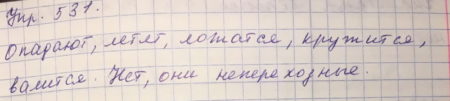 Упр. 531.
Опадают, летят, ложатся, кружится,
валится. Нет, они непереходные.